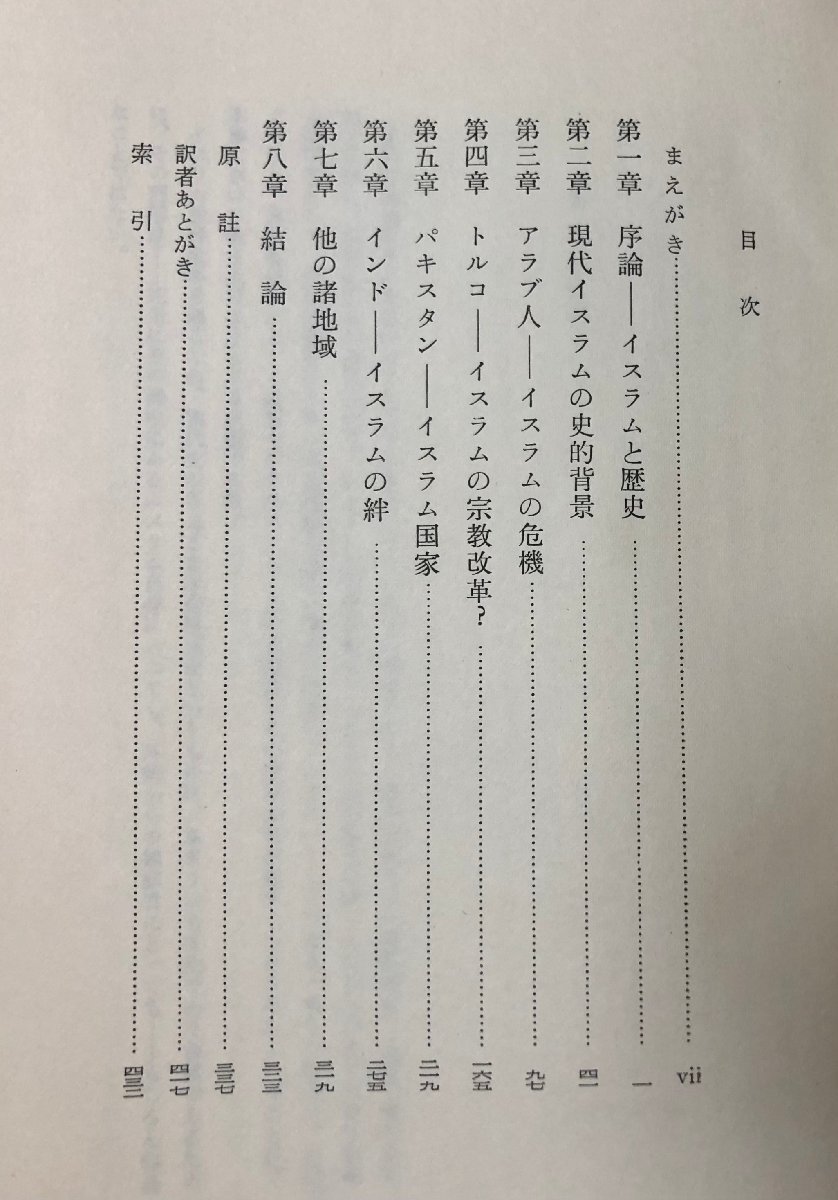 目次
まえがき…………vii
第一章 序論――イスラムと歴史…………一
第二章 現代イスラムの史的背景…………四一
第三章 アラブ人――イスラムの危機…………九七
第四章 トルコ――イスラムの宗教改革?…………一六五
第五章 パキスタン――イスラム国家…………二一九
第六章 インド――イスラムの絆…………二七五
第七章 他の諸地域…………三一九
第八章 結論…………三二三
原註…………三三七
訳者あとがき…………四一七
索引…………四三二